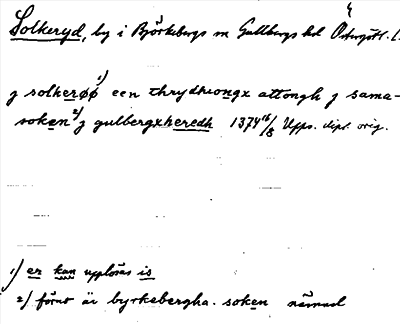 Solkeryd, by i Björkebergs sn Gullbergs hd Östergötl. l.
j solkerøø 1) een thrydiwongx attongh j sama-
soken 2) j gulbergxheredh 1374 16/8 Upps. dipl. orig.
1) er kan upplösas is
2) förut är byrkebergha. soken nämnd